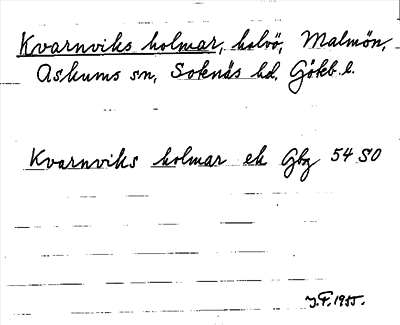 Kvarnviks holmar, halvö, Malmön,
Askums sn, Sotenäs hd, Götkb. l.
Kvarnviks holmar ek Gbg 54 SO
J.F. 1955.